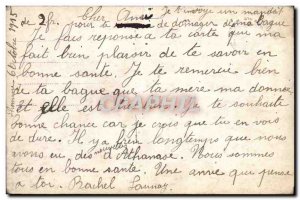 Cher Ami Je t'envoye un mandat
de 2 fr. pour te de domager de ma bague
Je fais reponse a ta carte que ma
fait bien plaisir de te savoir en
bonne santé. Je te remercie bien
de ta bague que ta mere ma donner
Et elle est te souhaite
bonne chance car je crois que tu en vois
de dure. Il y a bien longtemps que nous
avons eu des nouvelles d'Athanase. Nous sommes
tous en bonne santé. Une amie qui pense
a toi. Rachel Launay
1915